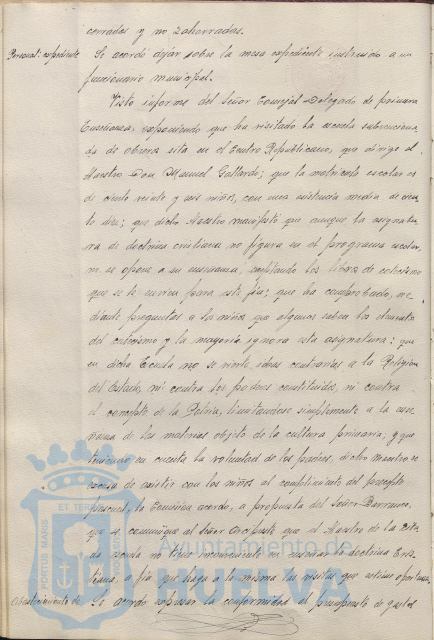 cerradas y no zahorradas.
Personal: expediente Se acordó dejar sobre la mesa expediente instruido a un
funcionario municipal.
Visto informe del Señor Concejal-Delegado de primera
Enseñanza, exponiendo que ha visitado la escuela subvenciona-
da de obreros sita en el Centro Republicano, que dirige el
Maestro Don Manuel Gallardo; que la matrícula escolar es
de ciento veinte y seis niños, con una asistencia media de cien-
to diez; que dicho Maestro manifestó que aunque la asignatu-
ra de doctrina cristiana no figura en el programa escolar,
no se opone a su enseñanza, facilitando los libros de catecismo
que se le envíen para este fin; que ha comprobado, me-
diante preguntas a los niños que algunos saben los elementos
del catecismo y la mayoría ignora esta asignatura; que
en dicha Escuela no se vierten ideas contrarias a la Religión
del Estado, ni contra los poderes constituidos, ni contra
el concepto de la Patria, limitándose simplemente a la ense-
ñanza de las materias objeto de la cultura primaria; y que
teniendo en cuenta la voluntad de los padres, dicho Maestro se
excusa de asistir con los niños al cumplimiento del precepto
pascual, la Comisión acordó, a propuesta del Señor Barranco,
que se comunique al Señor Arcipreste que el Maestro de la cita-
da escuela no tiene inconveniente en enseñar la doctrina Cris-
tiana, a fin que haga a la misma las visitas que estime oportunas.
Abastecimiento de Se acordó expresar la conformidad al presupuesto de gastos
PORTUS MARIS
ET TERRAE
Ayuntamiento de
HUELVA